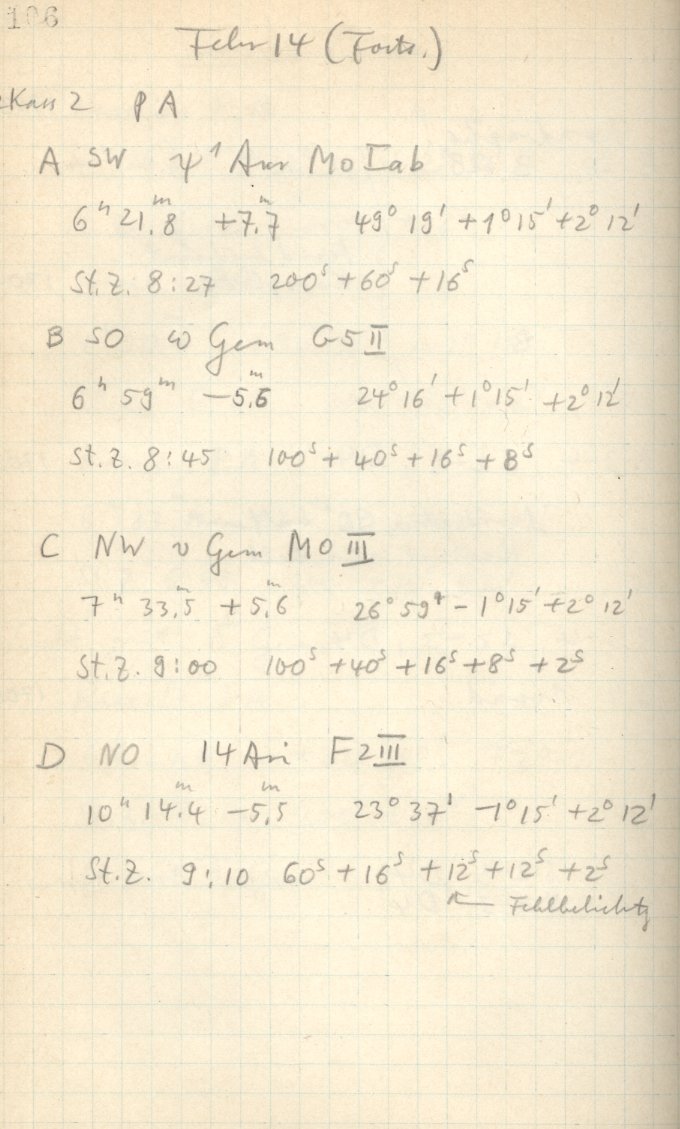 106
Febr 14 (Forts.)
Kass 2 PA
A SW ψ¹ Aur M0 Iab
6ʰ 21,ᵐ8 +7,ᵐ7 49° 19' +1° 15' +2° 12'
St.Z. 8:27 200ˢ +60ˢ +16ˢ
B SO ω Gem G5 II
6ʰ 59ᵐ −5,ᵐ6 24° 16' +1° 15' +2° 12'
St.Z. 8:45 100ˢ + 40ˢ + 16ˢ + 8ˢ
C NW υ Gem M0 III
7ʰ 33,ᵐ5 +5,ᵐ6 26° 59' −1° 15' +2° 12'
St.Z. 9:00 100ˢ +40ˢ +16ˢ +8ˢ +2ˢ
D NO 14 Ari F2 III
10ʰ 14.ᵐ4 −5,ᵐ5 23° 37' −1° 15' +2° 12'
St.Z. 9:10 60ˢ +16ˢ +12ˢ +12ˢ +2ˢ
← Fehlbelichtg